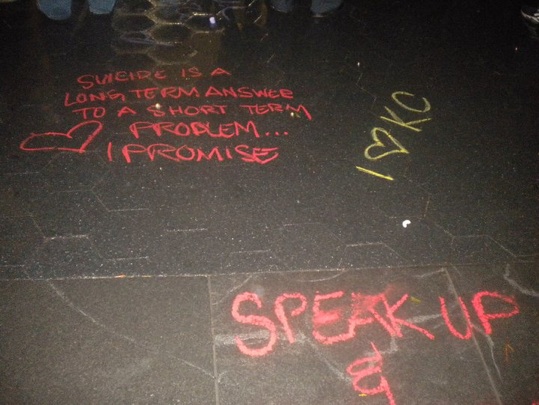 SUICIDE IS A
LONG TERM ANSWER
TO A SHORT TERM
PROBLEM...
I PROMISE
I ♡ KC
SPEAK UP
&